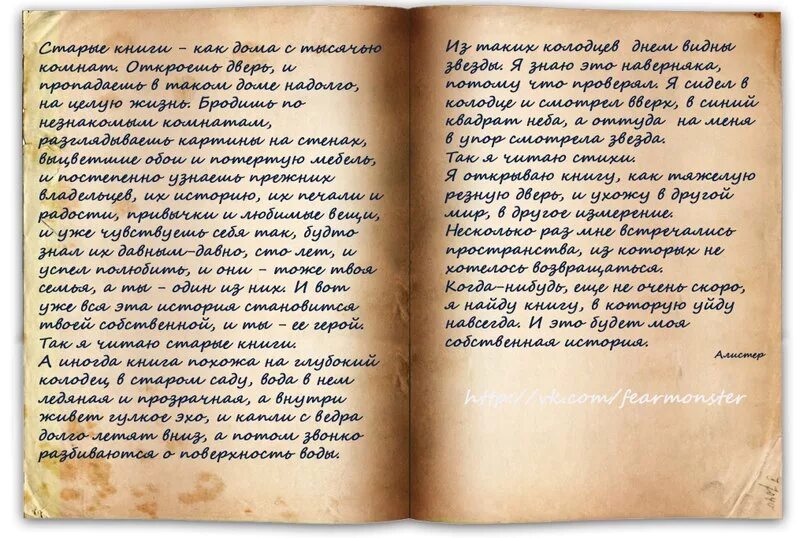 Старые книги - как дома с тысячью
комнат. Откроешь дверь, и
пропадаешь в таком доме надолго,
на целую жизнь. Бродишь по
незнакомым комнатам,
разглядываешь картины на стенах,
выцветшие обои и потертую мебель,
и постепенно узнаешь прежних
владельцев, их историю, их печали и
радости, привычки и любимые вещи,
и уже чувствуешь себя так, будто
знал их давным-давно, сто лет, и
успел полюбить, и они - тоже твоя
семья, а ты - один из них. И вот
уже вся эта история становится
твоей собственной, и ты - ее герой.
Так я читаю старые книги.
А иногда книга похожа на глубокий
колодец в старом саду, вода в нем
ледяная и прозрачная, а внутри
живет гулкое эхо, и капли с ведра
долго летят вниз, а потом звонко
разбиваются о поверхность воды.
Из таких колодцев днем видны
звезды. Я знаю это наверняка,
потому что проверял. Я сидел в
колодце и смотрел вверх, в синий
квадрат неба, а оттуда на меня
в упор смотрела звезда.
Так я читаю стихи.
Я открываю книгу, как тяжелую
резную дверь, и ухожу в другой
мир, в другое измерение.
Несколько раз мне встречались
пространства, из которых не
хотелось возвращаться.
Когда-нибудь, еще не очень скоро,
я найду книгу, в которую уйду
навсегда. И это будет моя
собственная история.
Алистер
http://vk.com/fearmonster